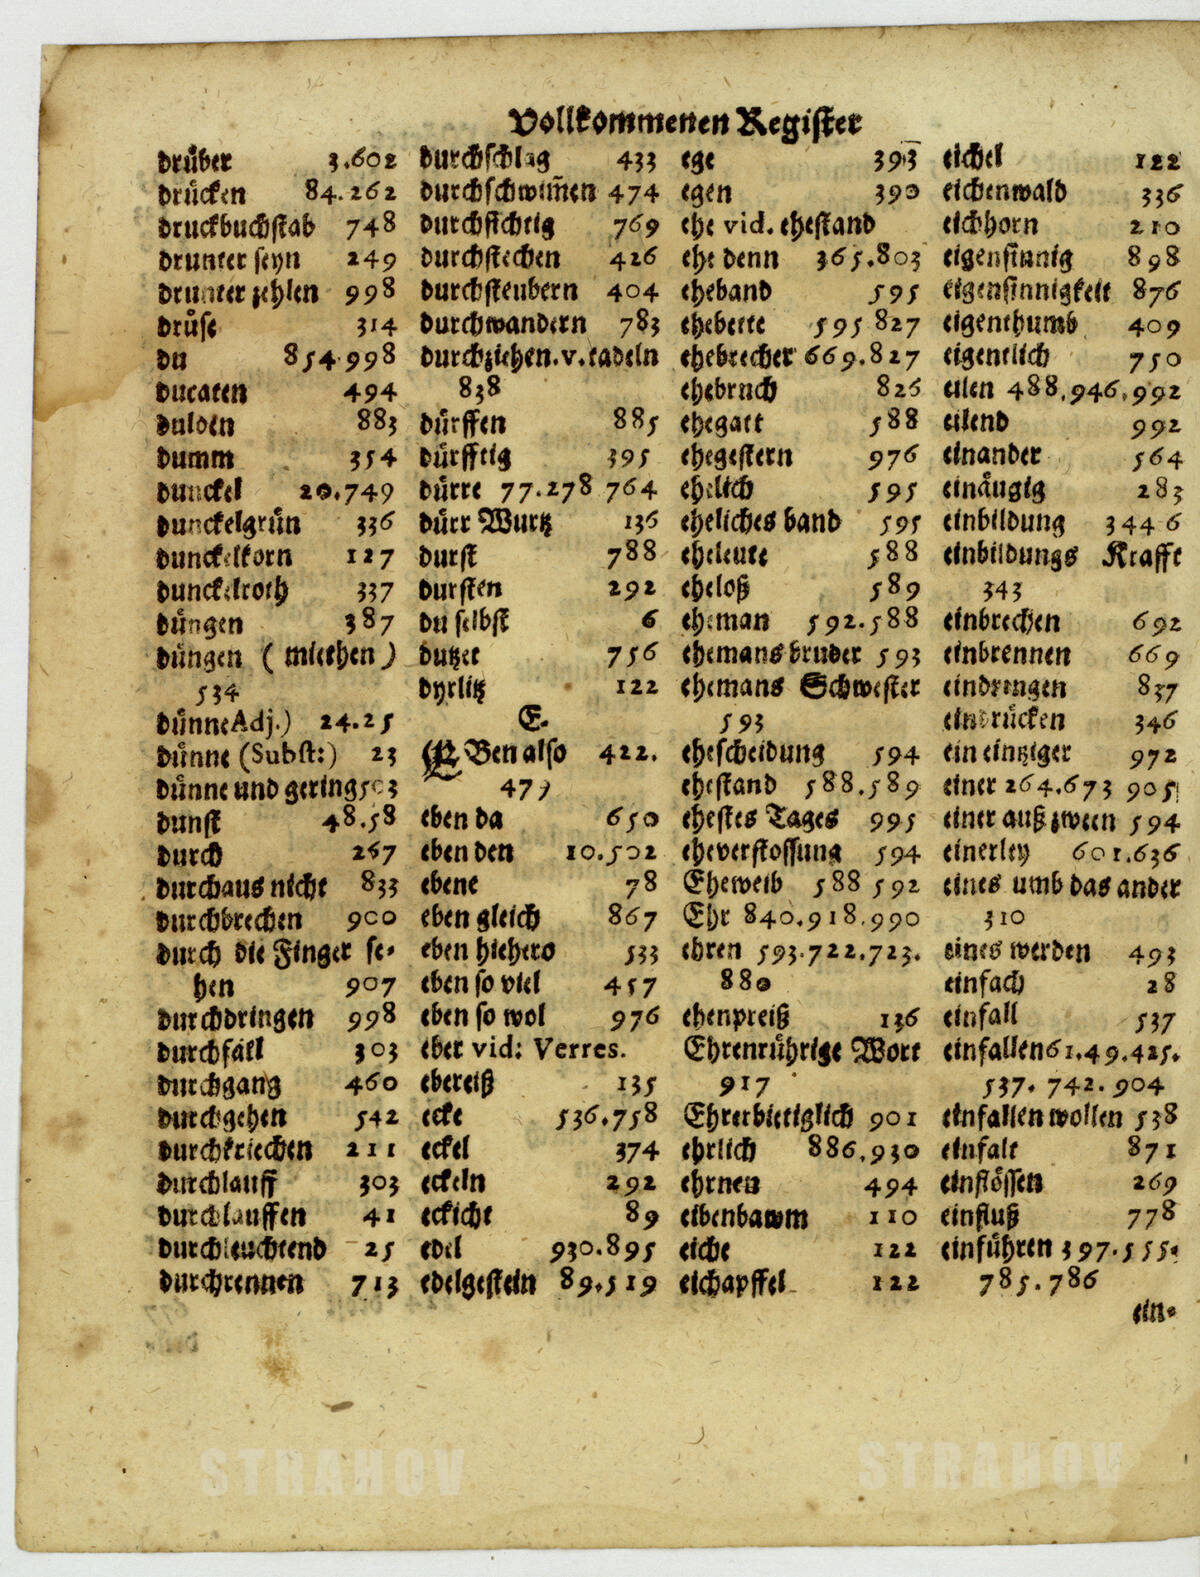 Vollkommenen Register
drüber 3.602
drücken 84.262
druckbuchstab 748
drunter seyn 249
drunter zehlen 998
drüse 314
du 854.998
ducaten 494
dulden 883
dumm 354
dunckel 20.749
dunckelgrün 336
dunckelkorn 127
dunckelroth 337
düngen 387
düngen (miethen)
534
dünne Adj.) 24.25
dünne (Subst:) 23
dünne und gering 503
dunst 48.58
durch 267
durchaus nicht 833
durchbrechen 900
durch die Finger se-
hen 907
durchdringen 998
durchfall 303
durchgang 460
durchgehen 542
durchkriechen 211
durchlauff 303
durchlauffen 41
durchleuchtend 25
durchrennen 713
durchschlag 433
durchschwim̄en 474
durchsichtig 769
durchstechen 426
durchsteubern 404
durchwandern 783
durchziehen.v.tadeln
838
dürffen 885
dürfftig 395
dürre 77.278 764
dürr Wurtz 136
durst 788
dursten 292
du selbst 6
dutzet 756
dyrlitz 122
E.
EBen also 422.
479
eben da 650
eben den 10.502
ebene 78
eben gleich 867
eben hiehero 533
eben so viel 457
eben so wol 976
eber vid: Verres.
ebereiß 135
ecke 536.758
eckel 374
eckeln 292
eckicht 89
edel 930.895
edelgestein 89.519
ege 393
egen 390
ehe vid. ehestand
ehe denn 365.803
eheband 595
ehebette 595 827
ehebrecher 669.827
ehebruch 826
ehegatt 588
ehegestern 976
ehelich 595
eheliches band 595
eheleute 588
eheloß 589
eheman 592.588
ehemans bruder 593
ehemans Schwester
593
ehescheidung 594
ehestand 588.589
ehestes Tages 995
eheverstossung 594
Eheweib 588 592
Ehr 840.918.990
ehren 593.722.723.
880
ehenpreiß 136
Ehrenrührige Wort
917
Ehrerbietiglich 901
ehrlich 886.930
ehrnen 494
eibenbawm 110
eiche 122
eichapffel 122
eichel 122
eichenwald 336
eichhorn 210
eigensinnig 898
eigensinnigkeit 876
eigenthumb 409
eigentlich 750
eilen 488.946.992
eilend 992
einander 564
einäugig 283
einbildung 344 6
einbildungs Krafft
343
einbrechen 692
einbrennen 669
eindringen 837
eindrücken 346
ein eintziger 972
einer 264.673 905
einer auß zween 594
einerley 601.636
eines umb das ander
310
eines werden 493
einfach 28
einfall 537
einfallen 61.49.425.
537. 742. 904
einfallen wollen 538
einfalt 871
einflössen 269
einfluß 778
einführen 397.555.
785.786
ein-
STRAHOV
STRAHOV